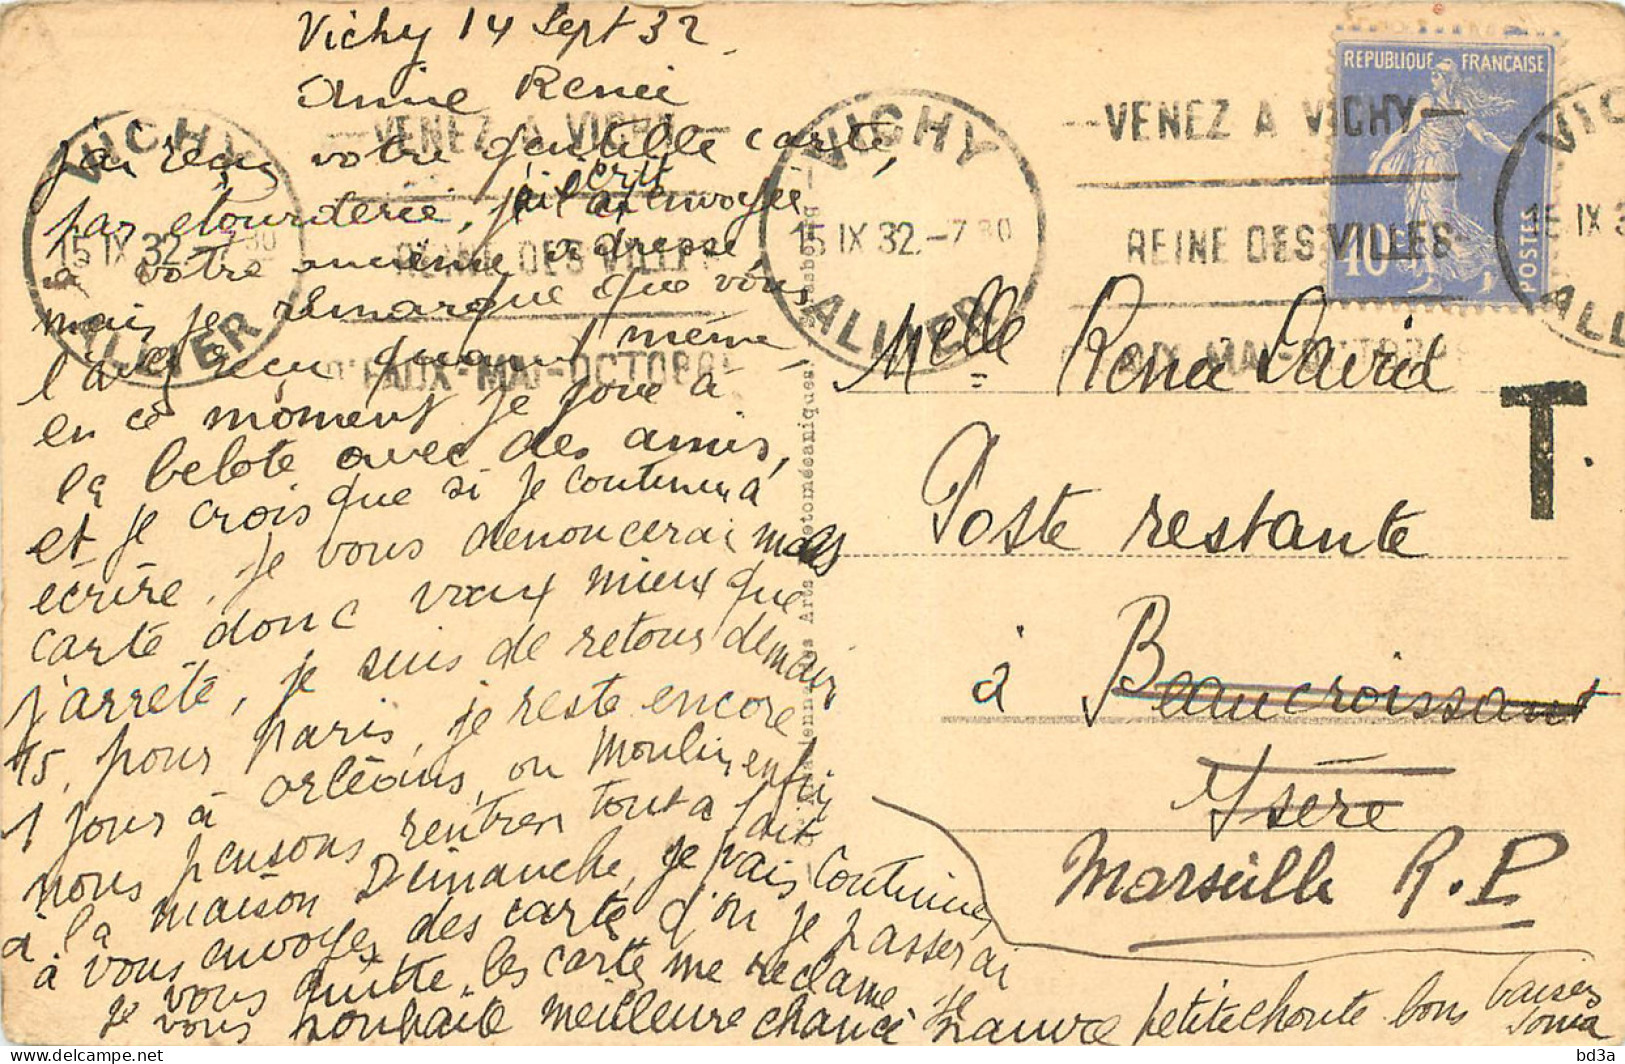 Vichy 14 Sept 32
Amie Renée
j'ai reçu votre gentille carte,
par etourderie, j'ai ecrit envoyée
à votre ancienne adresse
mais je remarque que vous
l'avez reçu quand même
en ce moment je joue à
la belote avec des amis,
et je crois que si je continu à
ecrire, je vous denoncerai mes
carte donc vaux mieux que
j'arrête, je suis de retour demain
15, pour Paris, je reste encore
1 jour à orléans, ou Moulin, enfin
nous pensons rentrer tout a fait
à la maison Dimanche, je vais continuer
à vous envoyer des carte d'ou je passerai
Je vous quitte, les carte me reclame
vous souhaite meilleure chance pauvre petite choute bons baisers
Sonia
REPUBLIQUE FRANÇAISE
40
POSTES
VICHY
15 IX 32 - 7 30
ALLIER
VENEZ A VICHY
REINE DES VILLES
D'EAUX-MAI-OCTOBRE
VICHY
15 IX 32 - 7 30
ALLIER
VENEZ A VICHY
REINE DES VILLES
D'EAUX-MAI-OCTOBRE
T.
Melle Renée David
Poste restante
à Beaucroissant
Isère
Marseille R.P
bd3a